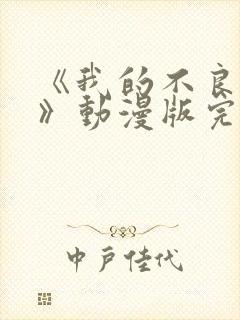 《我的不良
》動漫版完
中戶佳代